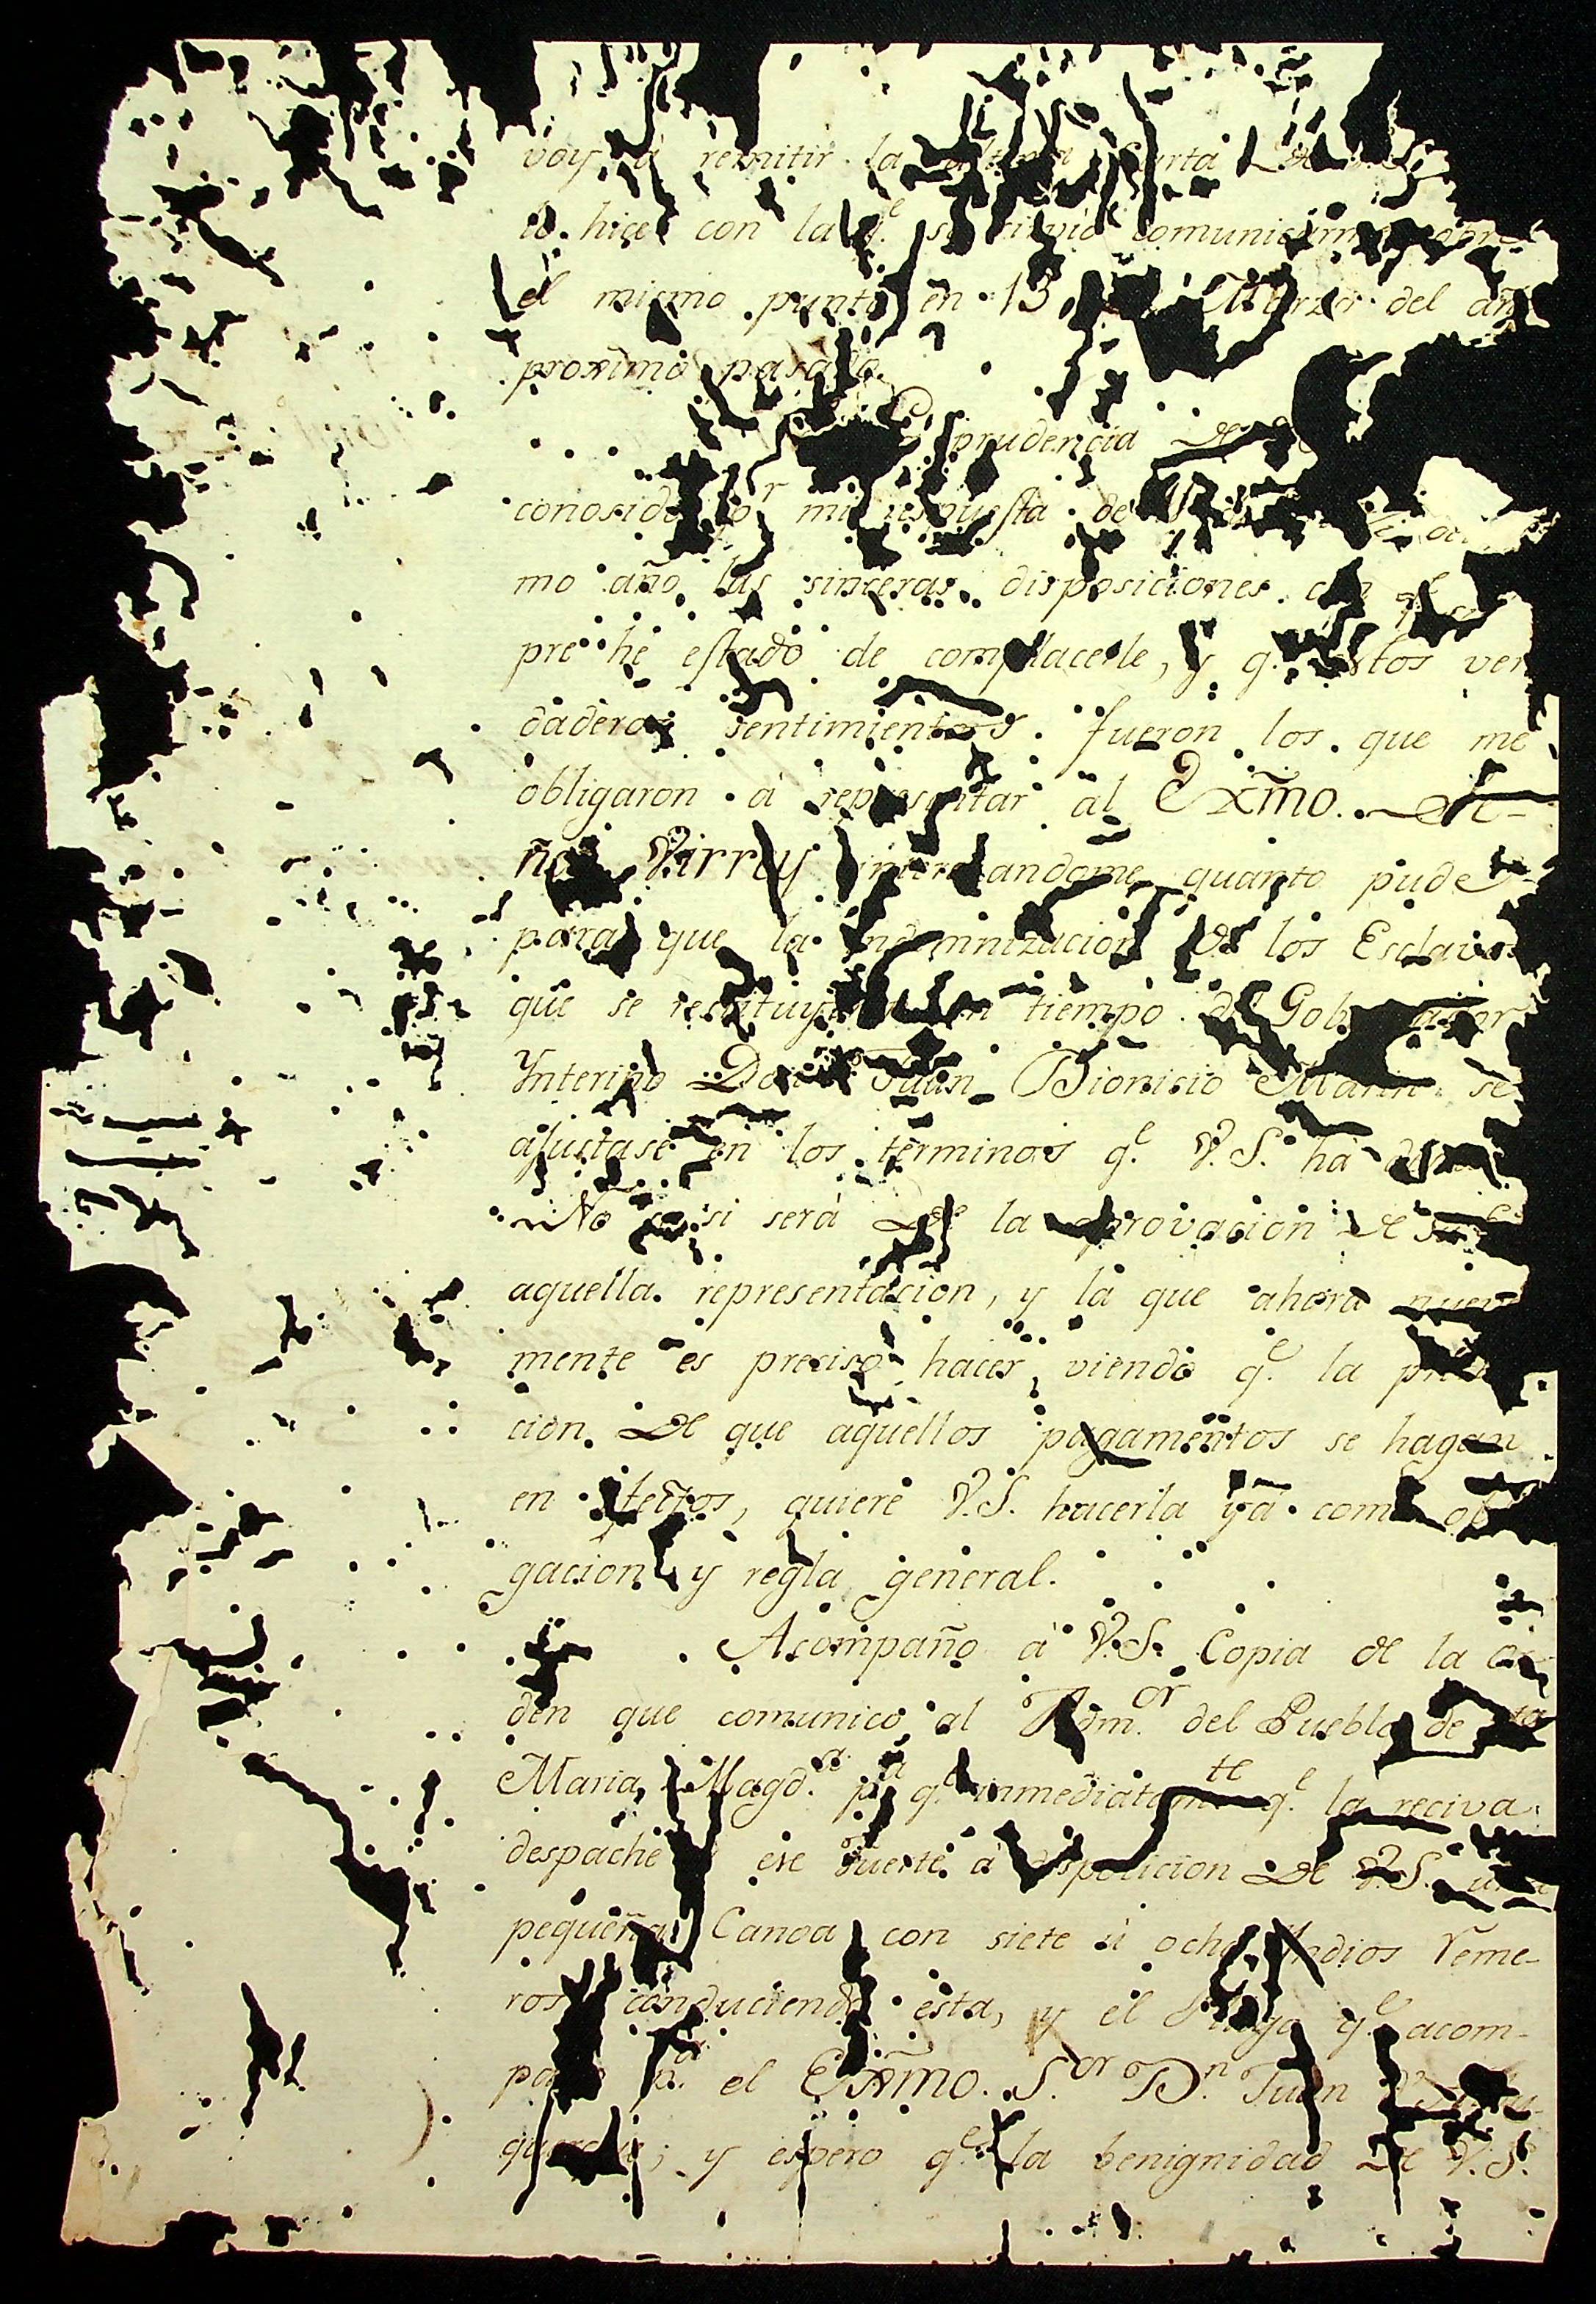 voy à remitir la ultima Carta De
lo hice con la q.e se sirvió comunicarme sobre
el mismo punto en 13 Marzo del año
proximo pasado.
prudencia De
conosido por mi respuesta de
mo año las sinceras disposiciones con q.e
pre hé estado de complacerle, y q.e estos ver
daderos sentimientos fueron los que me
obligaron à representar al Exm̃o. Se-
ñor Virrey interesandome quanto pude
para que la indemnizacion de los Esclavos
que se restituyeron en tiempo del Gobernador
Ynterino Don Juan Dionisio Marin se
ajustase en los terminos q.e V.S. hà
No se si serà De la aprovacion De su
aquella representacion, y la que ahora nueva
mente es preciso hacer viendo q.e la
cion De que aquellos pagamentos se hagan
en efectos, quiere V.S. hacerla ya como obli
gacion y regla general.
Acompaño à V.S. Copia de la Or
den que comunico al Adm.or del Pueblo de Sta
Maria Magd.a p.a q.e inmediatam.te q.e la reciva
despache à ese Fuerte à disposicion De V.S. una
pequeña Canoa con siete ù ocho Yndios Reme-
ros conduciendo esta, y el Pliego q.e acom-
paño p.a el Exm̃o. S.or D.n Juan
; y espero q.e la benignidad De V.S.